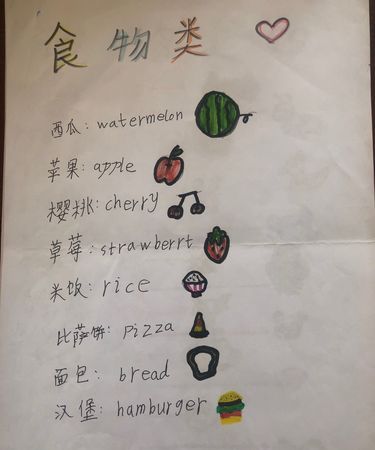 食物类
西瓜: watermelon
苹果: apple
樱桃: cherry
草莓: strawberrt
米饭: rice
比萨饼: pizza
面包: bread
汉堡: hamburger